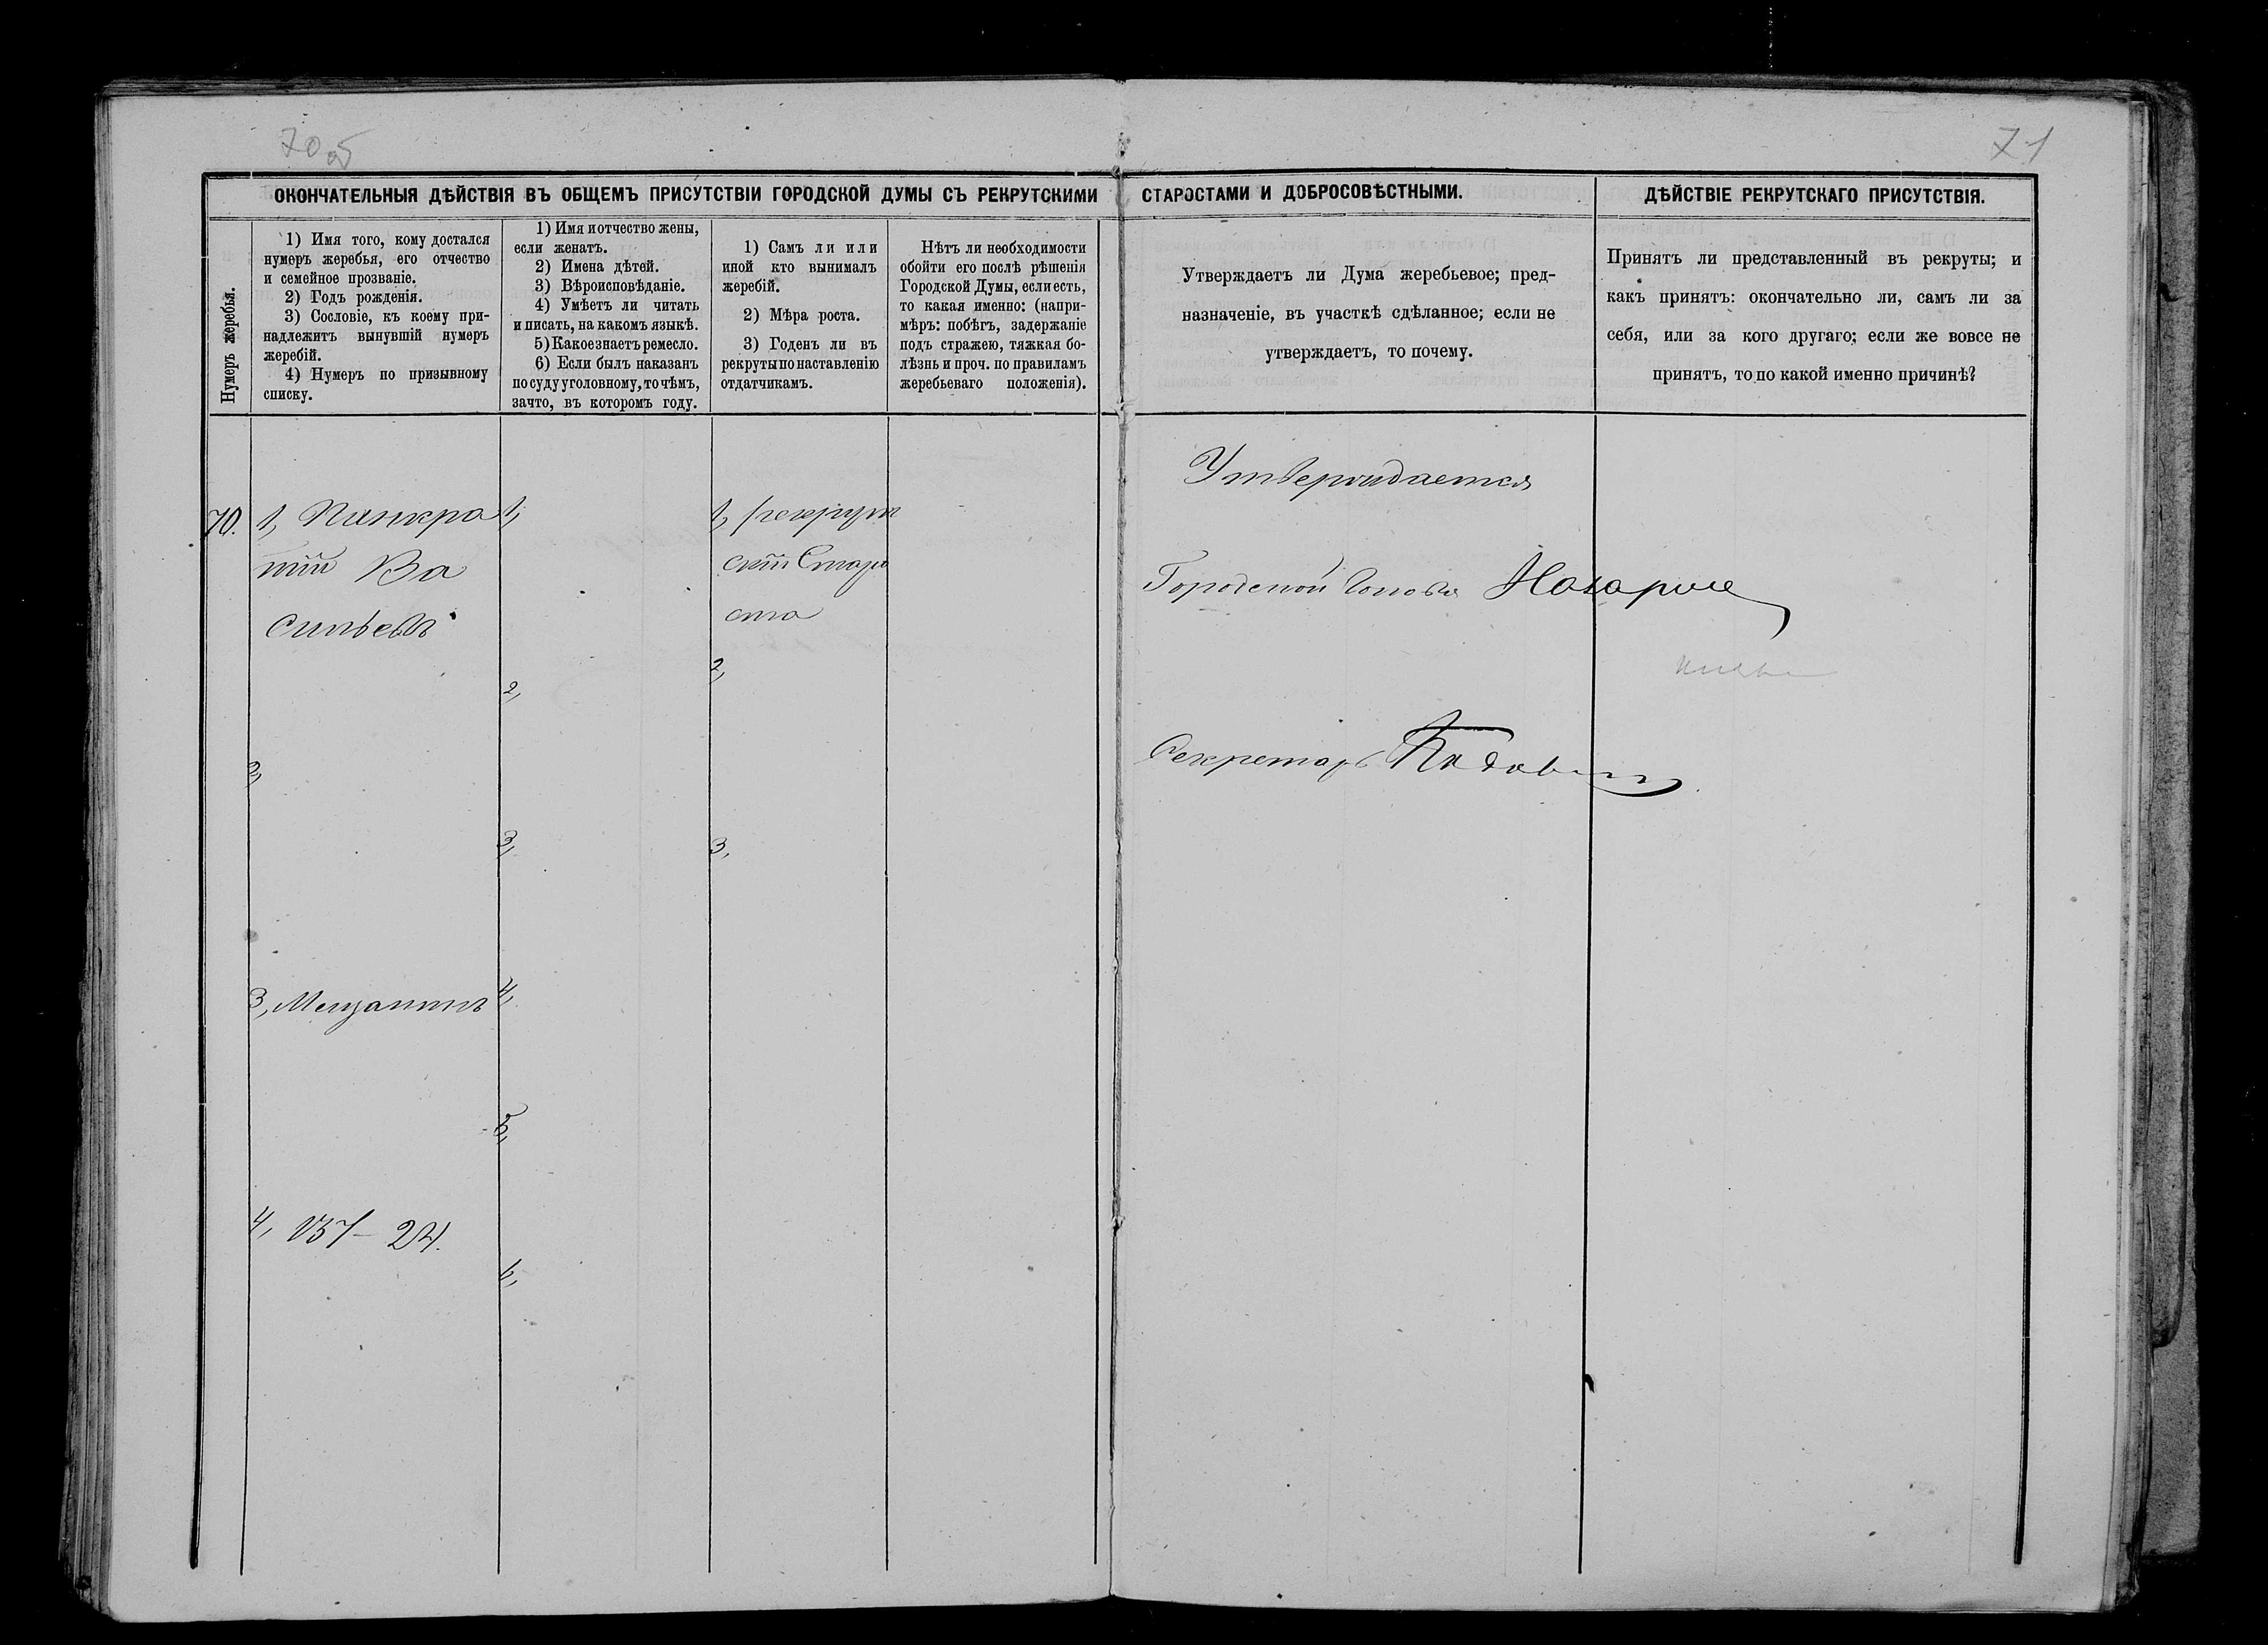 70 об
71
ОКОНЧАТЕЛЬНЫЯ ДѢЙСТВІЯ ВЪ ОБЩЕМЪ ПРИСУТСТВІИ ГОРОДСКОЙ ДУМЫ СЪ РЕКРУТСКИМИ СТАРОСТАМИ И ДОБРОСОВѢСТНЫМИ.
ДѢЙСТВІЕ РЕКРУТСКАГО ПРИСУТСТВІЯ.
Нумеръ жеребья.
1) Имя того, кому достался
нумеръ жеребья, его отчество
и семейное прозваніе.
2) Годъ рожденія.
3) Сословіе, къ коему при-
надлежитъ вынувшій нумеръ
жеребій.
4) Нумеръ по призывному
списку.
1) Имя и отчество жены,
если женатъ.
2) Имена дѣтей.
3) Вѣроисповѣданіе.
4) Умѣетъ ли читать
и писать, на какомъ языкѣ.
5) Какое знаетъ ремесло.
6) Если былъ наказанъ
по суду уголовному, то чѣмъ,
за что, въ которомъ году.
1) Самъ ли или
иной кто вынималъ
жеребій.
2) Мѣра роста.
3) Годенъ ли въ
рекруты по наставленію
отдатчикамъ.
Нѣтъ ли необходимости
обойти его послѣ рѣшенія
Городской Думы, если есть,
то какая именно: (напри-
мѣръ: побѣгъ, задержаніе
подъ стражею, тяжкая бо-
лѣзнь и проч. по правиламъ
жеребьеваго положенія).
Утверждаетъ ли Дума жеребьевое; пред-
назначеніе, въ участкѣ сдѣланное; если не
утверждаетъ, то почему.
Принятъ ли представленный въ рекруты; и
какъ принятъ: окончательно ли, самъ ли за
себя, или за кого другаго; если же вовсе не
принятъ, то по какой именно причинѣ?
70.
1, Панкра
тій Ва
сильевъ
2,
3, Мещанинъ
4, 137–24.
1,
2,
3,
4,
5,
6,
1, рекрут
скій Старо
ста
2,
3,
Утверждается
Городской Голова
Секретарь